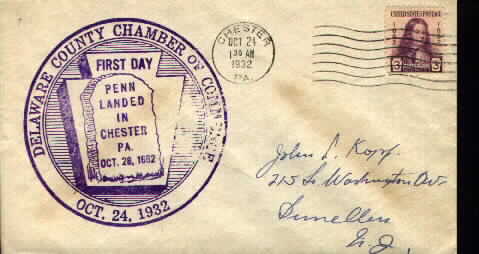 DELAWARE COUNTY CHAMBER OF COMMERCE
FIRST DAY
PENN
LANDED
IN
CHESTER
PA.
OCT. 28, 1682
OCT. 24, 1932
CHESTER
OCT 24
1932
PA.
UNITED STATES POSTAGE
3 3
John L. Kopf
215 So. Washington Ave
Dunellen
N.J.